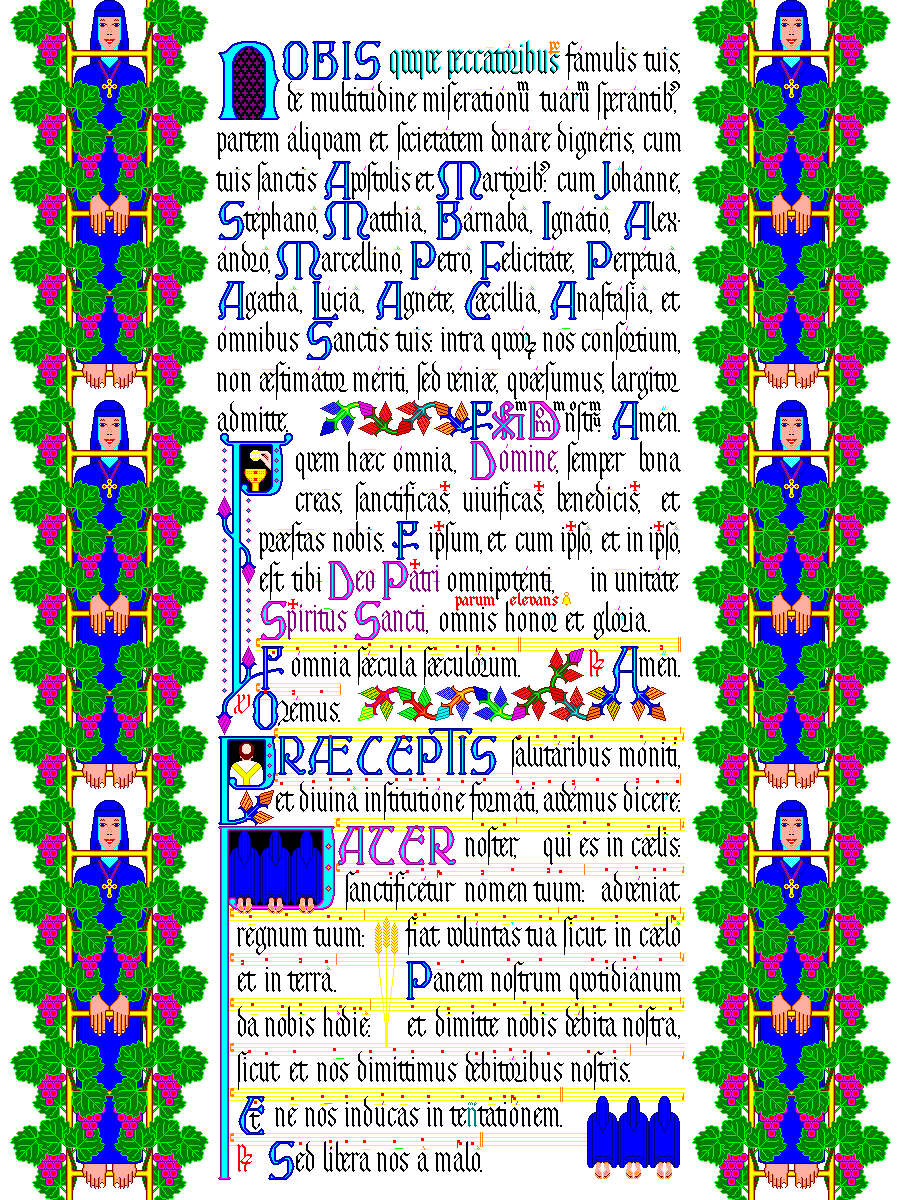 NOBIS quoqe peccatoribus famulis tuis,
de multitúdine miseratiónũ tuárũ sperántib9
partem áliquam et societátem donáre dignéris, cum
tuis sanctis Apóstolis et Martýrib9: cum Johánne,
Stéphano, Matthía, Bárnaba, Ignátio, Alex-
ándro, Marcellíno, Petro, Felicitáte, Perpétua,
Agatha, Lucia, Agnéte, Cæcíllia, Anastásia, et
ómnibus Sanctis tuis: intra quorꝝ nos consórtium,
non æstimátor mériti, sed véniæ, quǽsumus, largítor
admítte. P Xi Dom nostrũ. Amen.
P quem hæc ómnia, Dómine, semper bona
creas, sanctíficas✠, vivíficas✠, benedícis✠, et
præstas nobis. P ip✠sum, et cum ip✠so, et in ip✠so,
est tibi Deo Patri✠ omnipoténti, in unitáte
parum elevans
Spíritus✠ Sancti, omnis honor et glória.
P ómnia sǽcula sæculórum. ℟ Amen.
Orémus.
PRÆCEPTIS salutáribus móniti,
et divína institutióne formáti, audémus dícere:
PATER noster, qui es in cælis:
sanctificétur nomen tuum: advéniat
regnum tuum: fiat volúntas tua sicut in cælo
et in terra. Panem nostrum quotidiánum
da nobis hódie: et dimítte nobis débita nostra,
sicut et nos dimíttimus debitóribus nostris.
Et ne nos indúcas in tentatiónem.
℟ Sed líbera nos a malo.